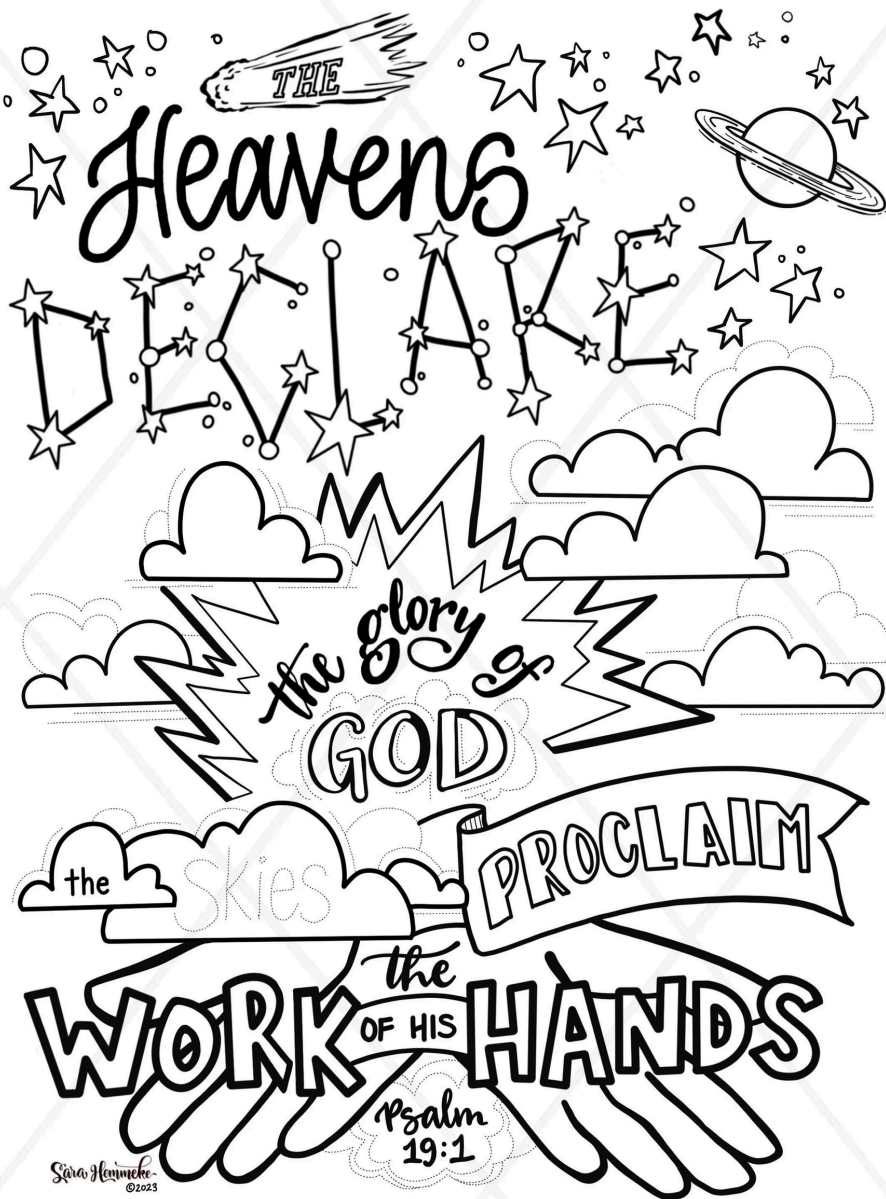 THE
Heavens
DECLARE
the glory of
GOD
the skies
PROCLAIM
the
WORK OF HIS HANDS
Psalm
19:1
Sara Hemmeke
©2023